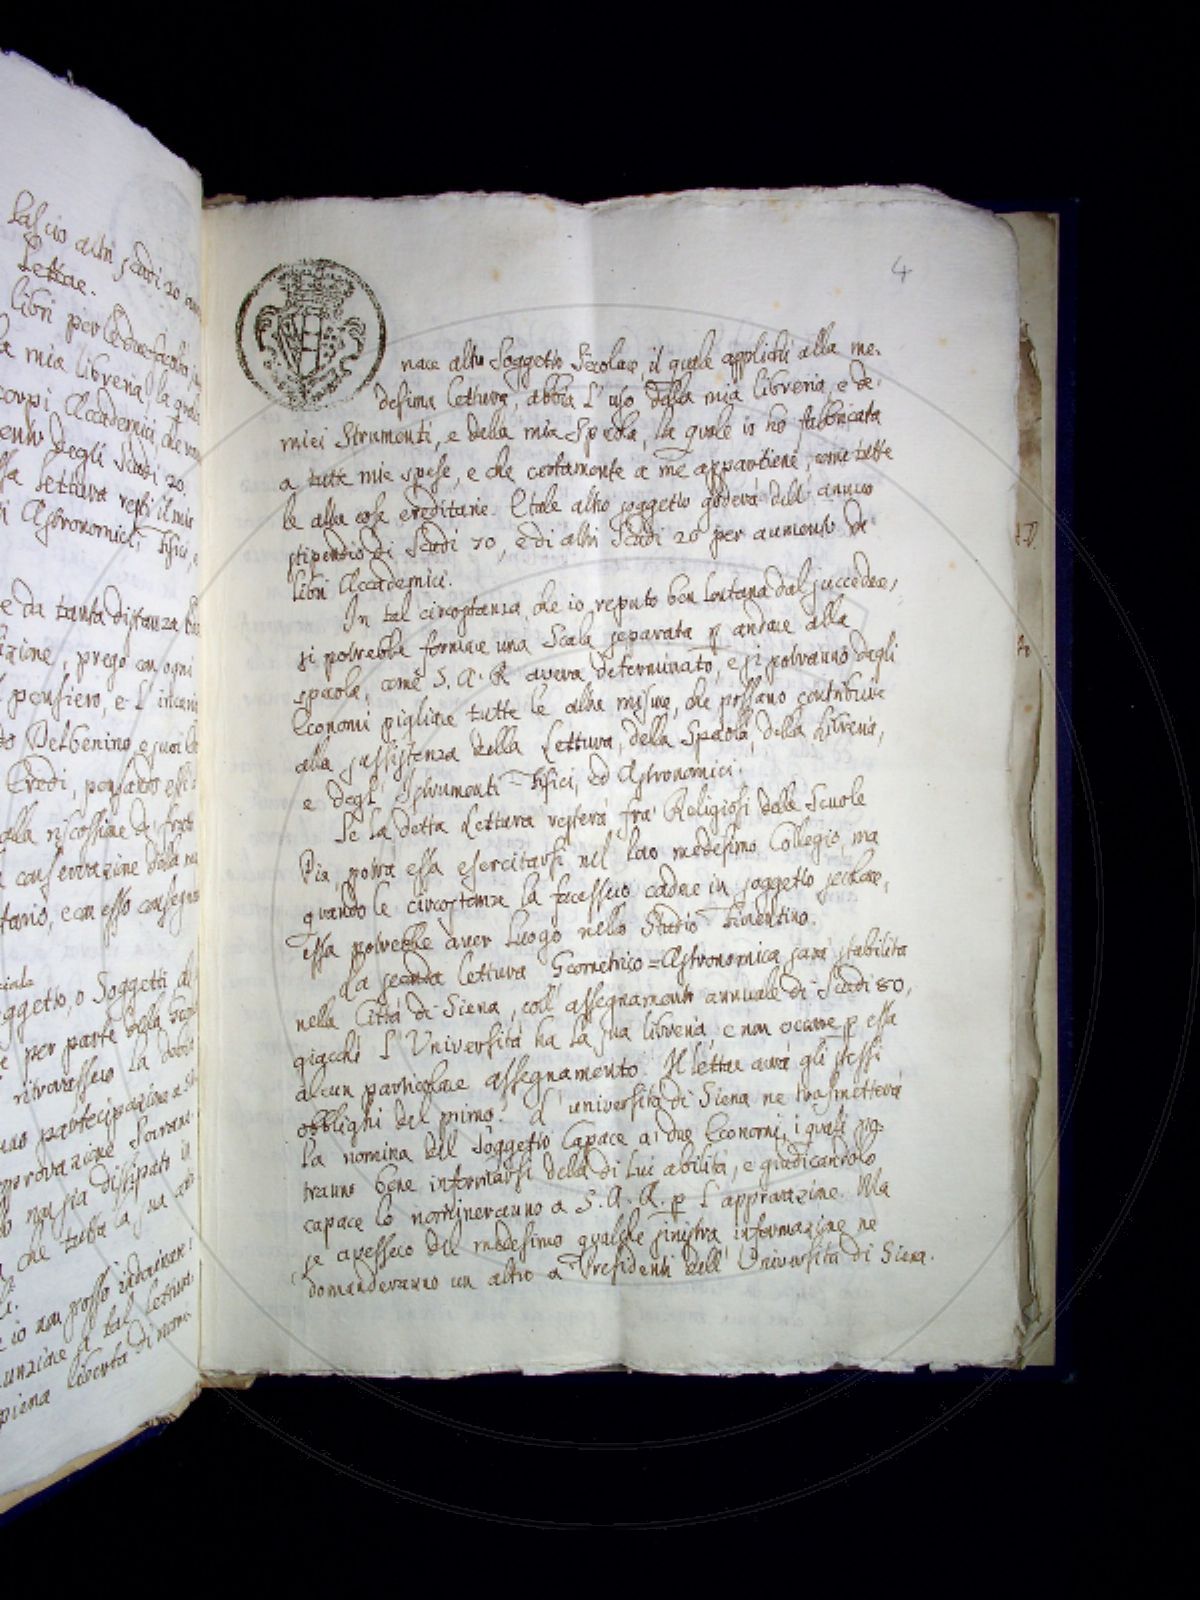 lascio altri scudi 20
Lettore.
libri per le due facoltà
mia libreria, la quale
corpi Accademici, che
degli scudi 20.
Lettura resti il mio
Astronomici, Fisici, e
e da tanta distanza
prego con ogni
pensiero, e l'
Del Benino e suoi
Eredi,
alla
conservazione della
con esso
Soggetto, o Soggetti
per parte della
ritrovassero la
partecipazione a
approvazione
non sia dissipato
che tutta la sua
io non posso indovinare
a tal Lettura
piena libertà di
4
nare altro Soggetto Secolare, il quale applichi alla me-
desima lettura, abbia l'uso della mia libreria, e de'
miei Strumenti, e della mia Specola, la quale io ho fabbricata
a tutte mie spese, e che certamente a me appartiene, come tutte
le altre cose ereditarie. E tale altro soggetto goderà dell'annuo
stipendio di Scudi 70, e di altri Scudi 20 per aumento de'
libri Accademici.
In tal circostanza, che io reputo ben lontana dal succedere,
si potrebbe formare una Scala separata p andare alla
specola, come S. A. R. aveva determinato, e si potranno dagli
Economi pigliare tutte le altre misure, che possano contribuire
alla sussistenza della Lettura, della Specola, della Libreria,
e degl'Istrumenti Fisici, ed Astronomici.
Se la detta Lettura resterà fra' Religiosi delle Scuole
Pie, potrà essa esercitarsi nel loro medesimo Collegio, ma
quando le circostanze la facessero cadere in soggetto secolare,
essa potrebbe aver luogo nello Studio Fiorentino.
La seconda lettura Geometrico=Astronomica sarà stabilita
nella Città di Siena, coll'assegnamento annuale di Scudi 80,
giacchè l'Università ha la sua libreria, e non occorre p essa
alcun particolare assegnamento. Il lettore avrà gli stessi
obblighi del primo. L'università di Siena ne trasmetterà
la nomina del Soggetto Capace a' due Economi, i quali po-
tranno bene informarsi della di lui abilità, e giudicandolo
capace lo nomineranno a S. A. R. p l'approvazione. Ma
se avessero del medesimo qualche sinistra informazione ne
domanderanno un altro a' Presidenti dell'Università di Siena.